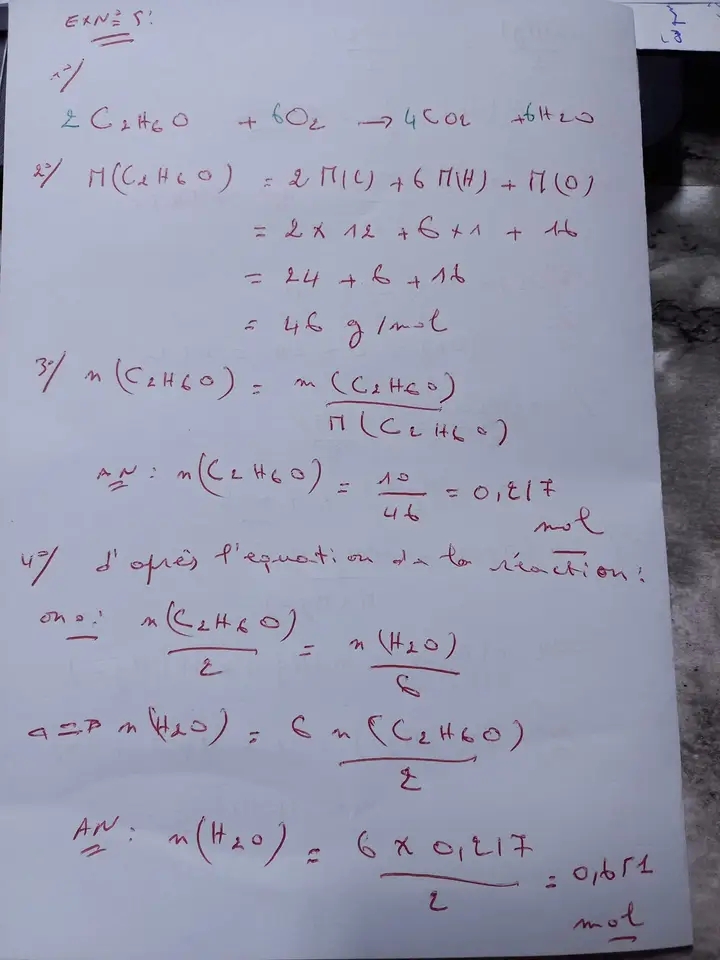 EXN° 5:
1°/
2 C2H6O + 6O2 → 4CO2 + 6H2O
2°/ M(C2H6O) = 2 M(C) + 6 M(H) + M(O)
= 2 x 12 + 6 x 1 + 16
= 24 + 6 + 16
= 46 g/mol
3°/ n(C2H6O) = m(C2H6O) / M(C2H6O)
AN: n(C2H6O) = 10 / 46 = 0,217 mol
4°/ d'après l'equation de la réaction:
on a: n(C2H6O) / 2 = n(H2O) / 6
<=> n(H2O) = 6 n(C2H6O) / 2
AN: n(H2O) = 6 x 0,217 / 2 = 0,651 mol